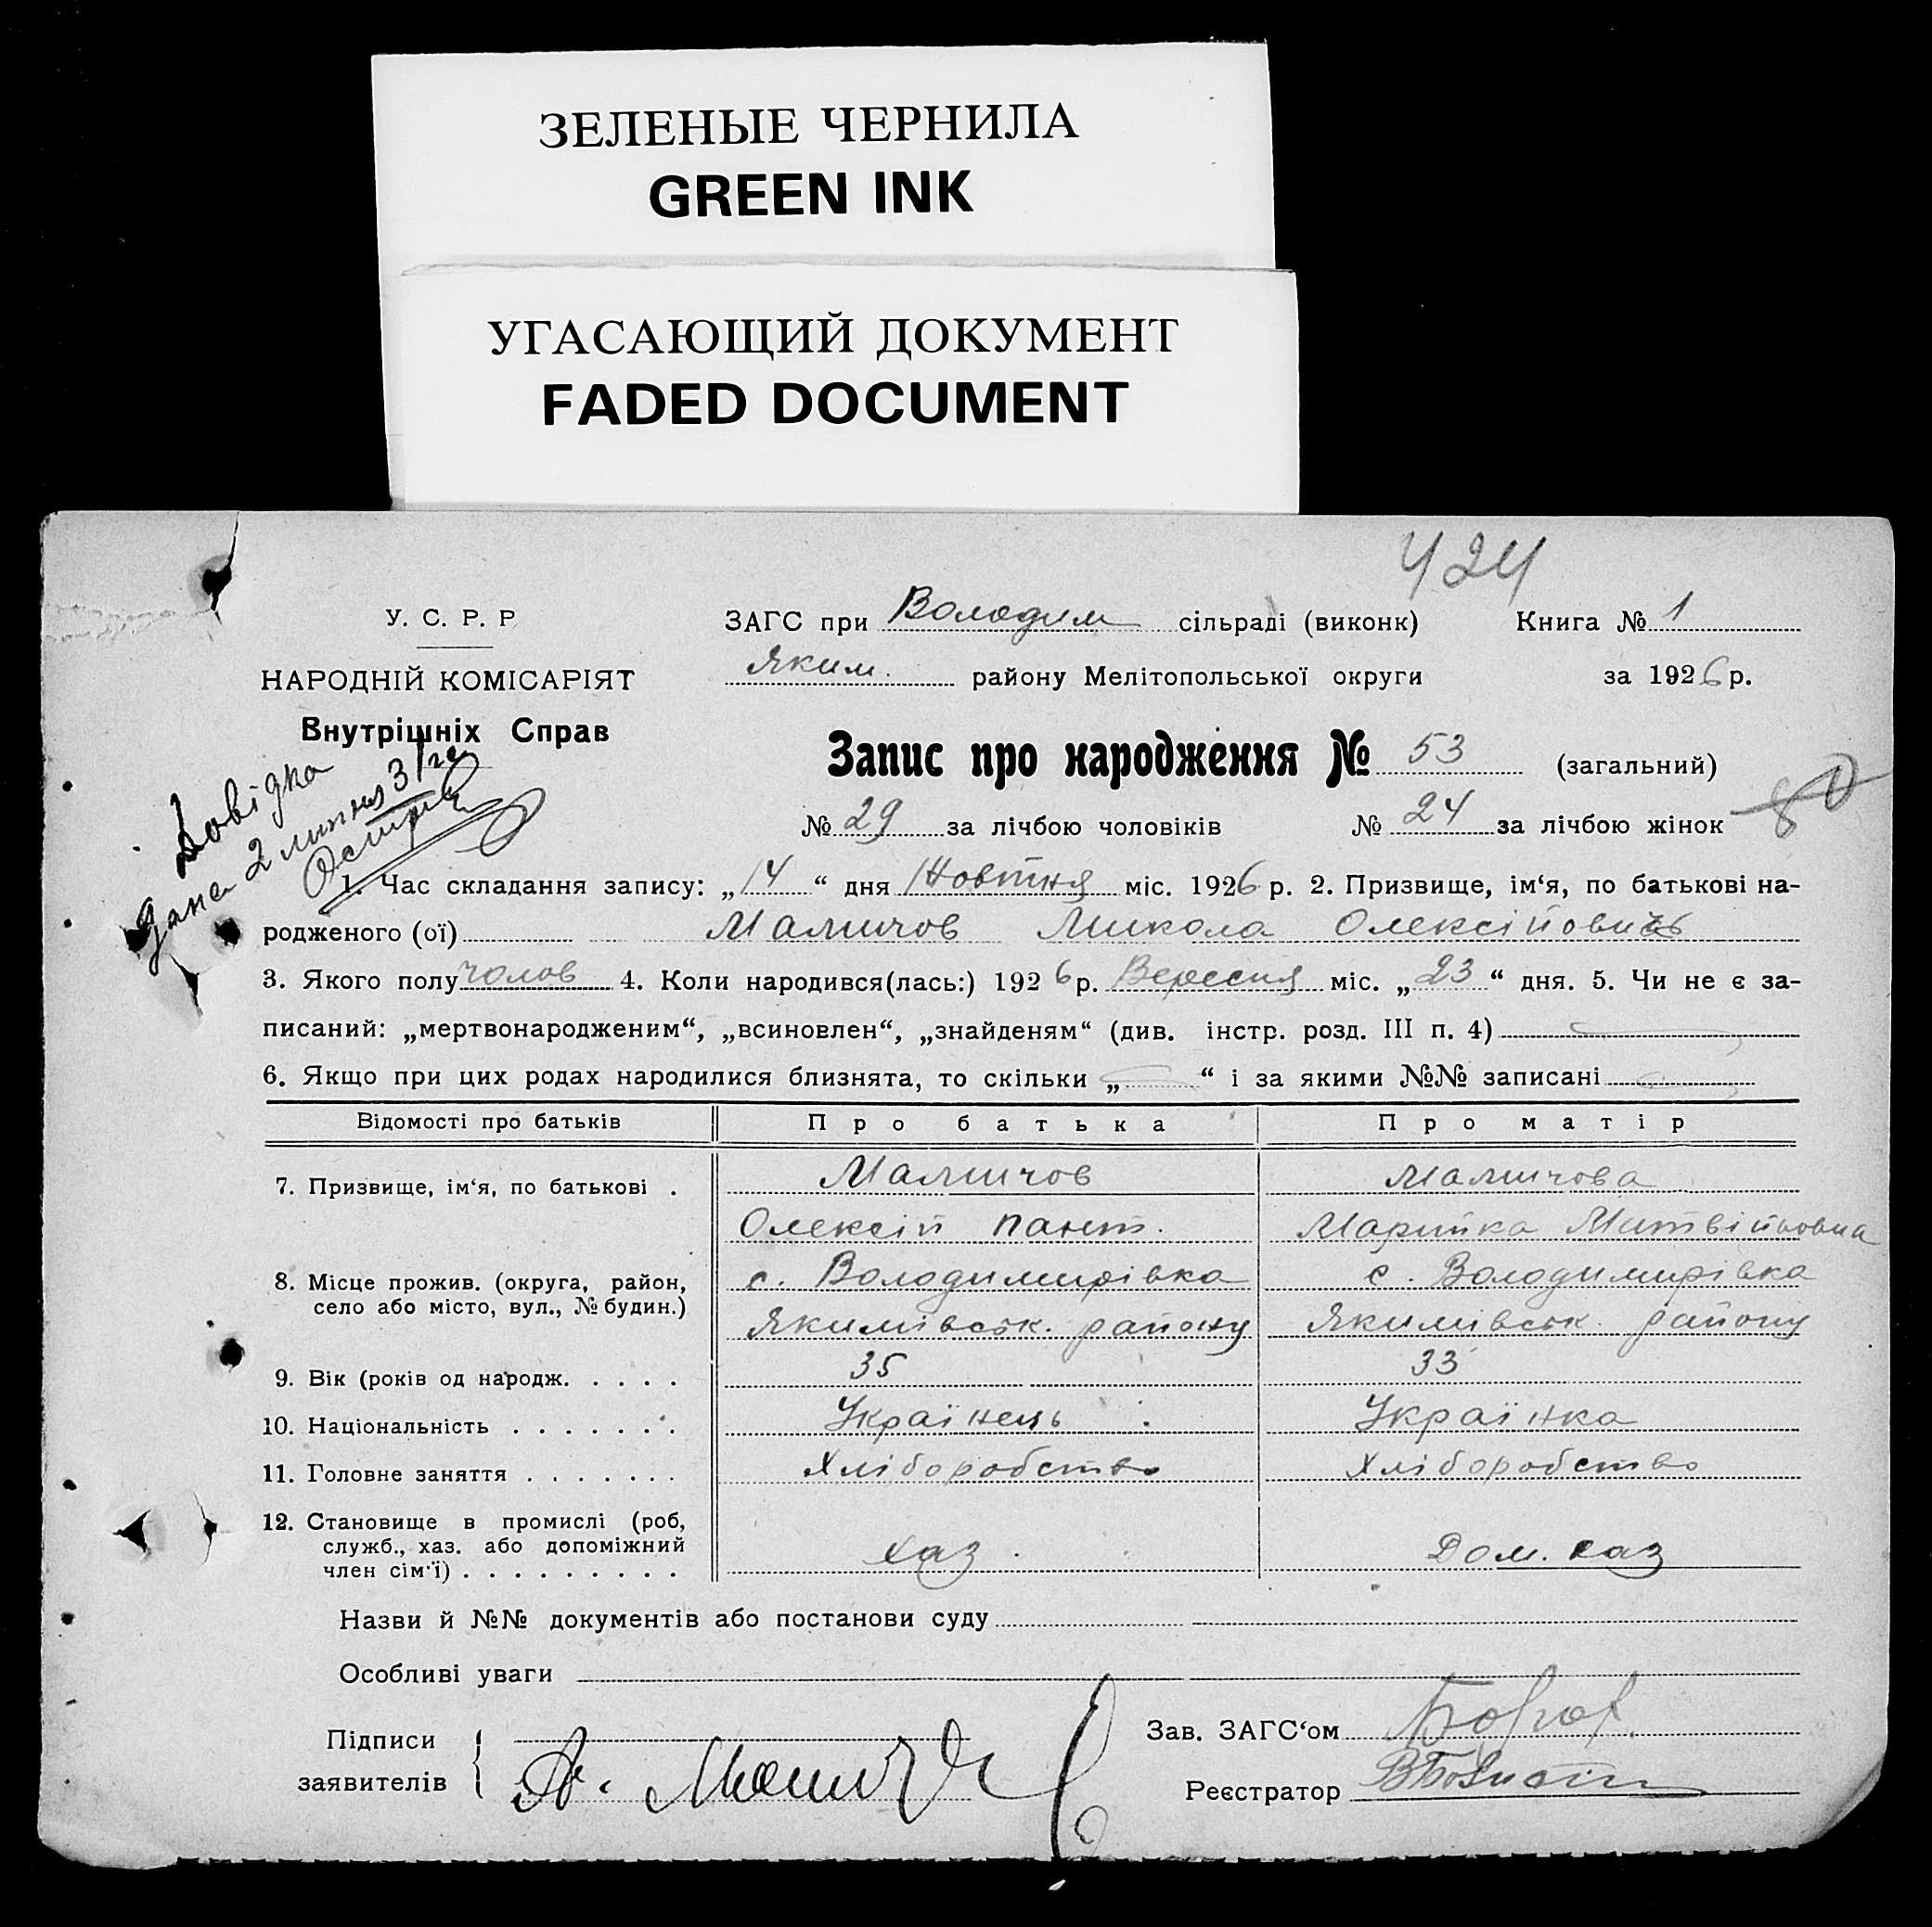 ЗЕЛЕНЫЕ ЧЕРНИЛА
GREEN INK
УГАСАЮЩИЙ ДОКУМЕНТ
FADED DOCUMENT
424
У. С. Р. Р
НАРОДНІЙ КОМІСАРІЯТ
Внутрішніх Справ
ЗАГС при Володим сільраді (виконк) Книга № 1
Яким. району Мелітопольської округи за 1926 р.
Запис про народження № 53 (загальний)
№ 29 за лічбою чоловіків № 24 за лічбою жінок 80
Довідка
дана 2 липня 31
1. Час складання запису: „14“ дня Жовтня міс. 1926 р. 2. Призвище, ім‘я, по батькові на-
родженого (ої) Маличов Микола Олексійович
3. Якого полу чолов 4. Коли народився(лась:) 1926 р. Вересня міс. „23“ дня. 5. Чи не є за-
писаний: „мертвонародженим“, „всиновлен“, „знайденям“ (див. інстр. розд. III п. 4)
6. Якщо при цих родах народилися близнята, то скільки „ “ і за якими №№ записані
Відомості про батьків Про батька Про матір
7. Призвище, ім‘я, по батькові . Маличов Маличова
Олексій Пант. Марийка Митвійовна
8. Місце прожив. (округа, район, село або місто, вул., № будин.) с. Володимирівка с. Володимирівка
Якимівськ. району Якимівськ. району
9. Вік (років од народж. . . . . 35 33
10. Національність . . . . . . . Українець Українка
11. Головне заняття . . . . . . . Хліборобство Хліборобство
12. Становище в промислі (роб, служб., хаз. або допоміжний член сім‘ї) . . . . . . . . . Хаз. Дом. хаз
Назви й №№ документів або постанови суду
Особливі уваги
Підписи
заявителів
Зав. ЗАГС‘ом
Реєстратор